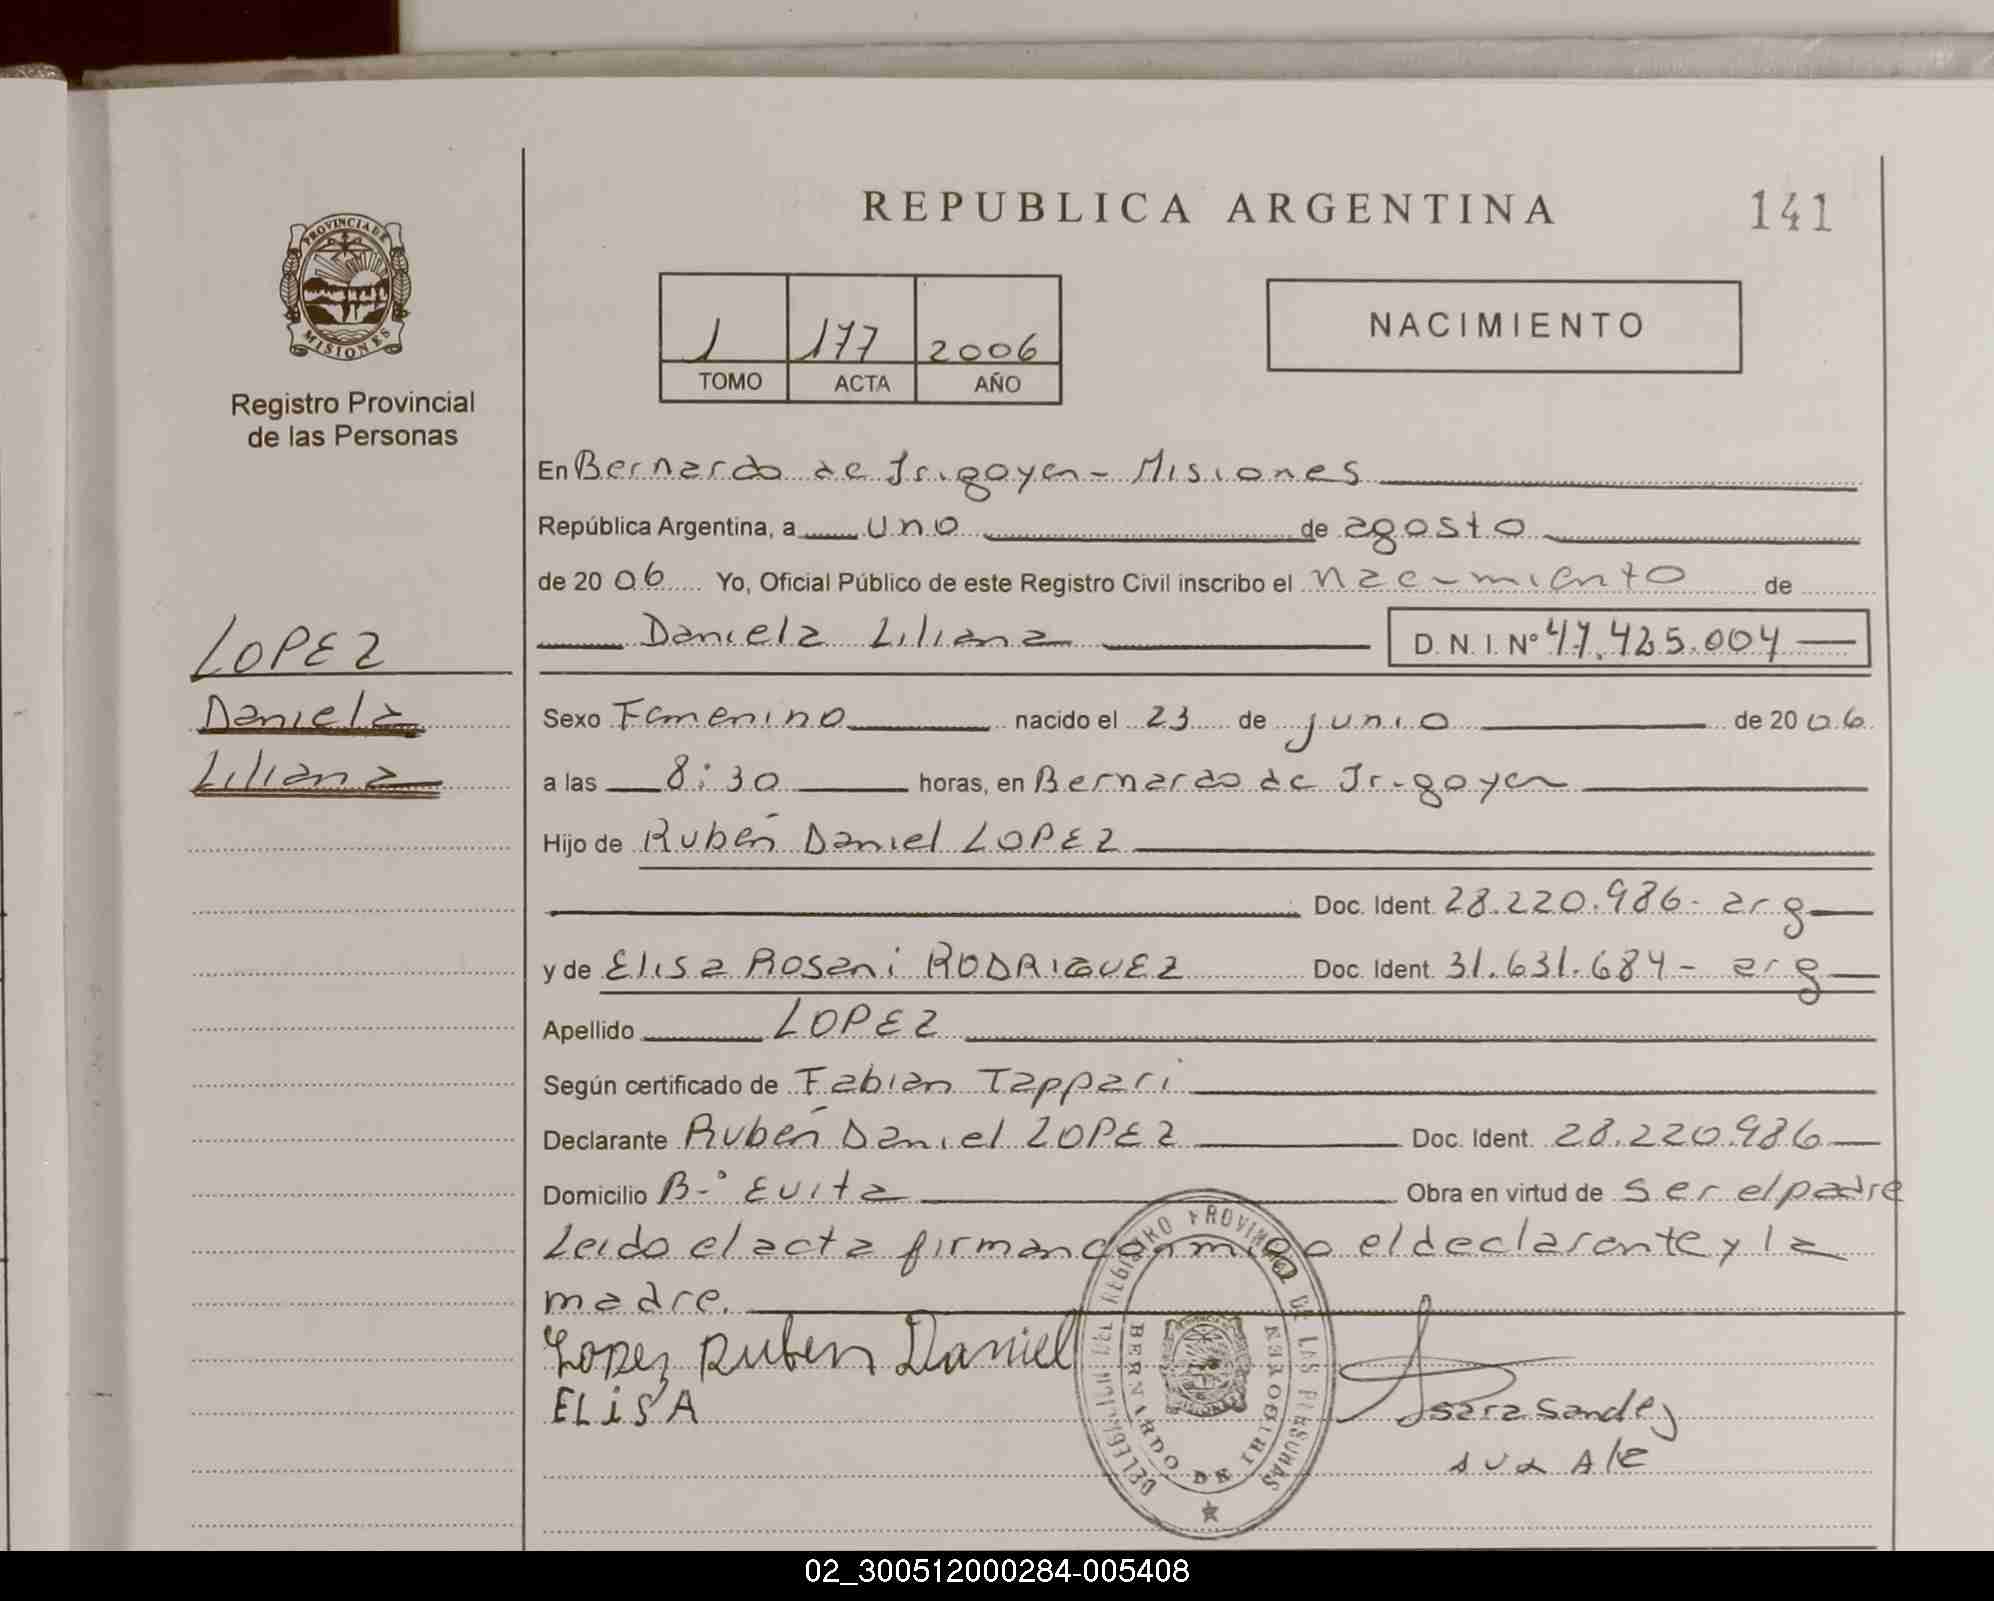 REPUBLICA ARGENTINA
141
PROVINCIA DE MISIONES
Registro Provincial
de las Personas
1 177 2006
TOMO ACTA AÑO
NACIMIENTO
En Bernardo de Irigoyen - Misiones
República Argentina, a uno de agosto
de 2006 Yo, Oficial Público de este Registro Civil inscribo el nacimiento de
Daniela Liliana D. N. I. Nº 47.425.004
LOPEZ
Daniela
Liliana
Sexo Femenino nacido el 23 de junio de 2006
a las 8:30 horas, en Bernardo de Irigoyen
Hijo de Rubén Daniel LOPEZ
Doc. Ident. 28.220.986 - arg
y de Elisa Rosani RODRIGUEZ Doc. Ident. 31.631.684 - arg
Apellido LOPEZ
Según certificado de Fabian Tappari
Declarante Rubén Daniel LOPEZ Doc. Ident. 28.220.986
Domicilio B-º Evita Obra en virtud de ser el padre
Leido el acta firman conmigo el declarante y la
madre.
Lopez Ruben Daniel
ELiSA
DELEGACION DEL REGISTRO PROVINCIAL DE LAS PERSONAS
BERNARDO DE IRIGOYEN
02_300512000284-005408